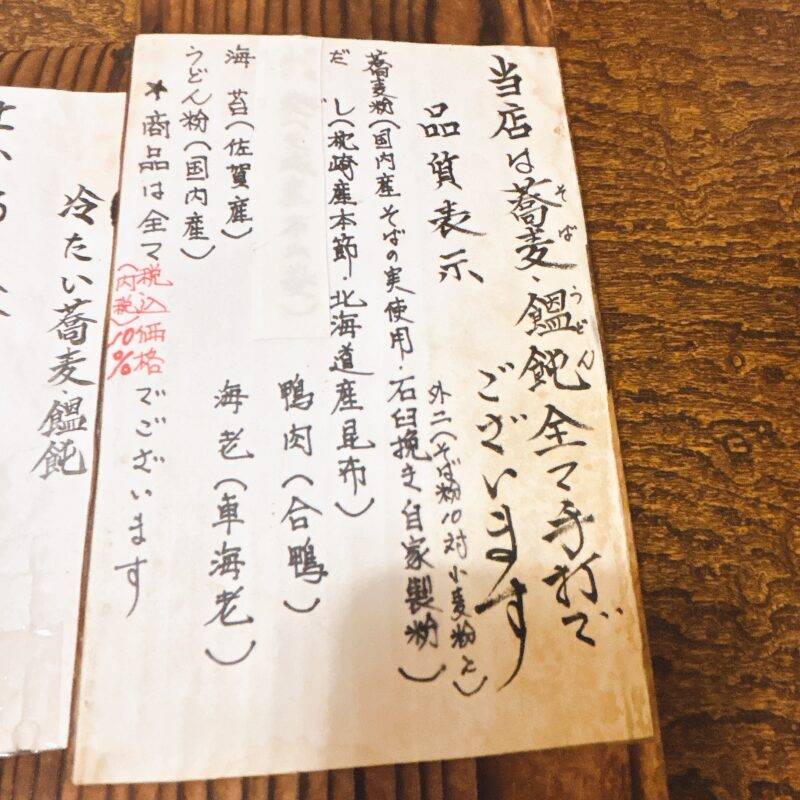 当店は蕎麦・饂飩全て手打で
そば うどん
ございます
品質表示
外二(そば粉10対小麦粉2)
蕎麦粉(国内産そばの実使用・石臼挽き自家製粉)
だし(枕崎産本節・北海道産昆布)
鴨肉(合鴨)
海苔(佐賀産)
海老(車海老)
うどん粉(国内産)
*商品は全て税込価格(内税10%)でございます
冷たい蕎麦・饂飩